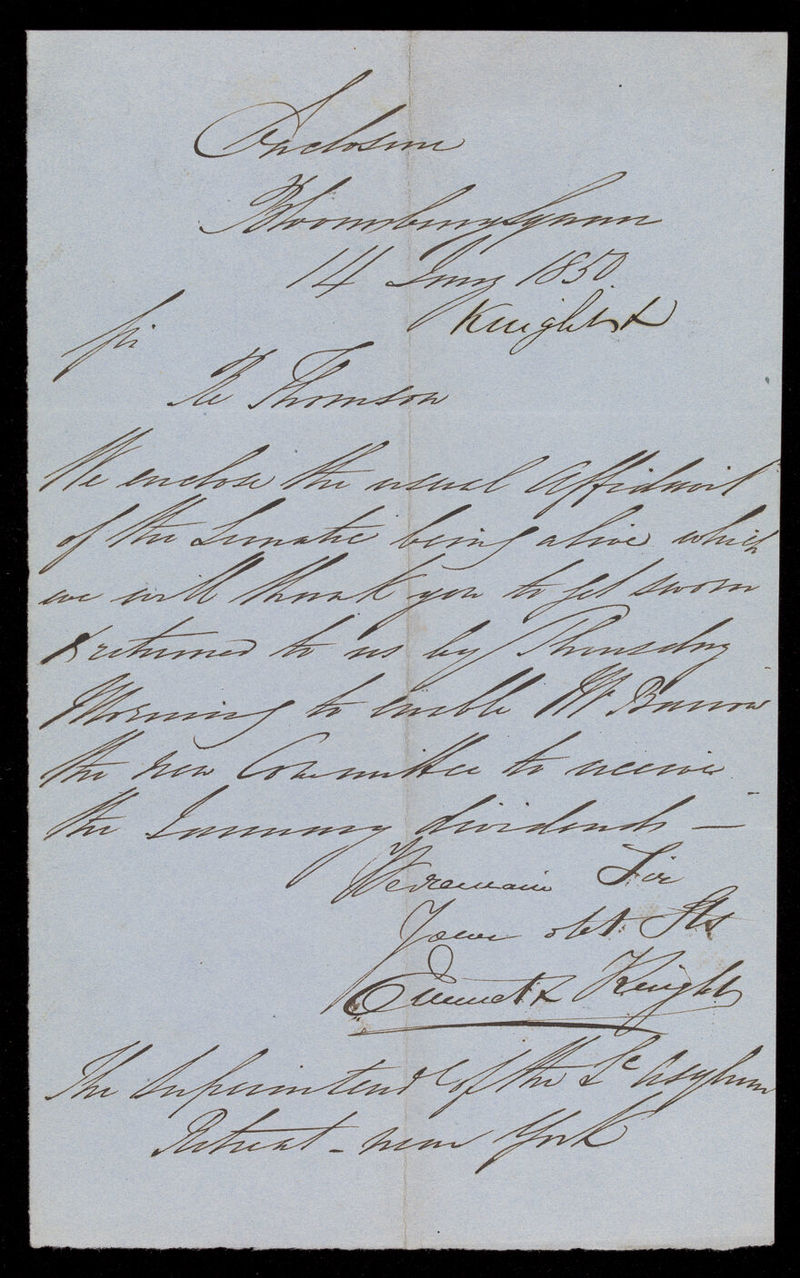 Enclosure
Bloomsbury Square
14 Jany 1850
Knight &
Sir
Re Thomson
We enclose the usual Affidavit
of the Lunatic being alive which
we will thank you to get sworn
& returned to us by Thursday
Morning to enable Mr Barrow
the new Committee to receive
the January dividends —
We remain Sir
Your obt Sts
Emmet & Knight
The Superintendt of the Lc Asylum
Retreat - near York